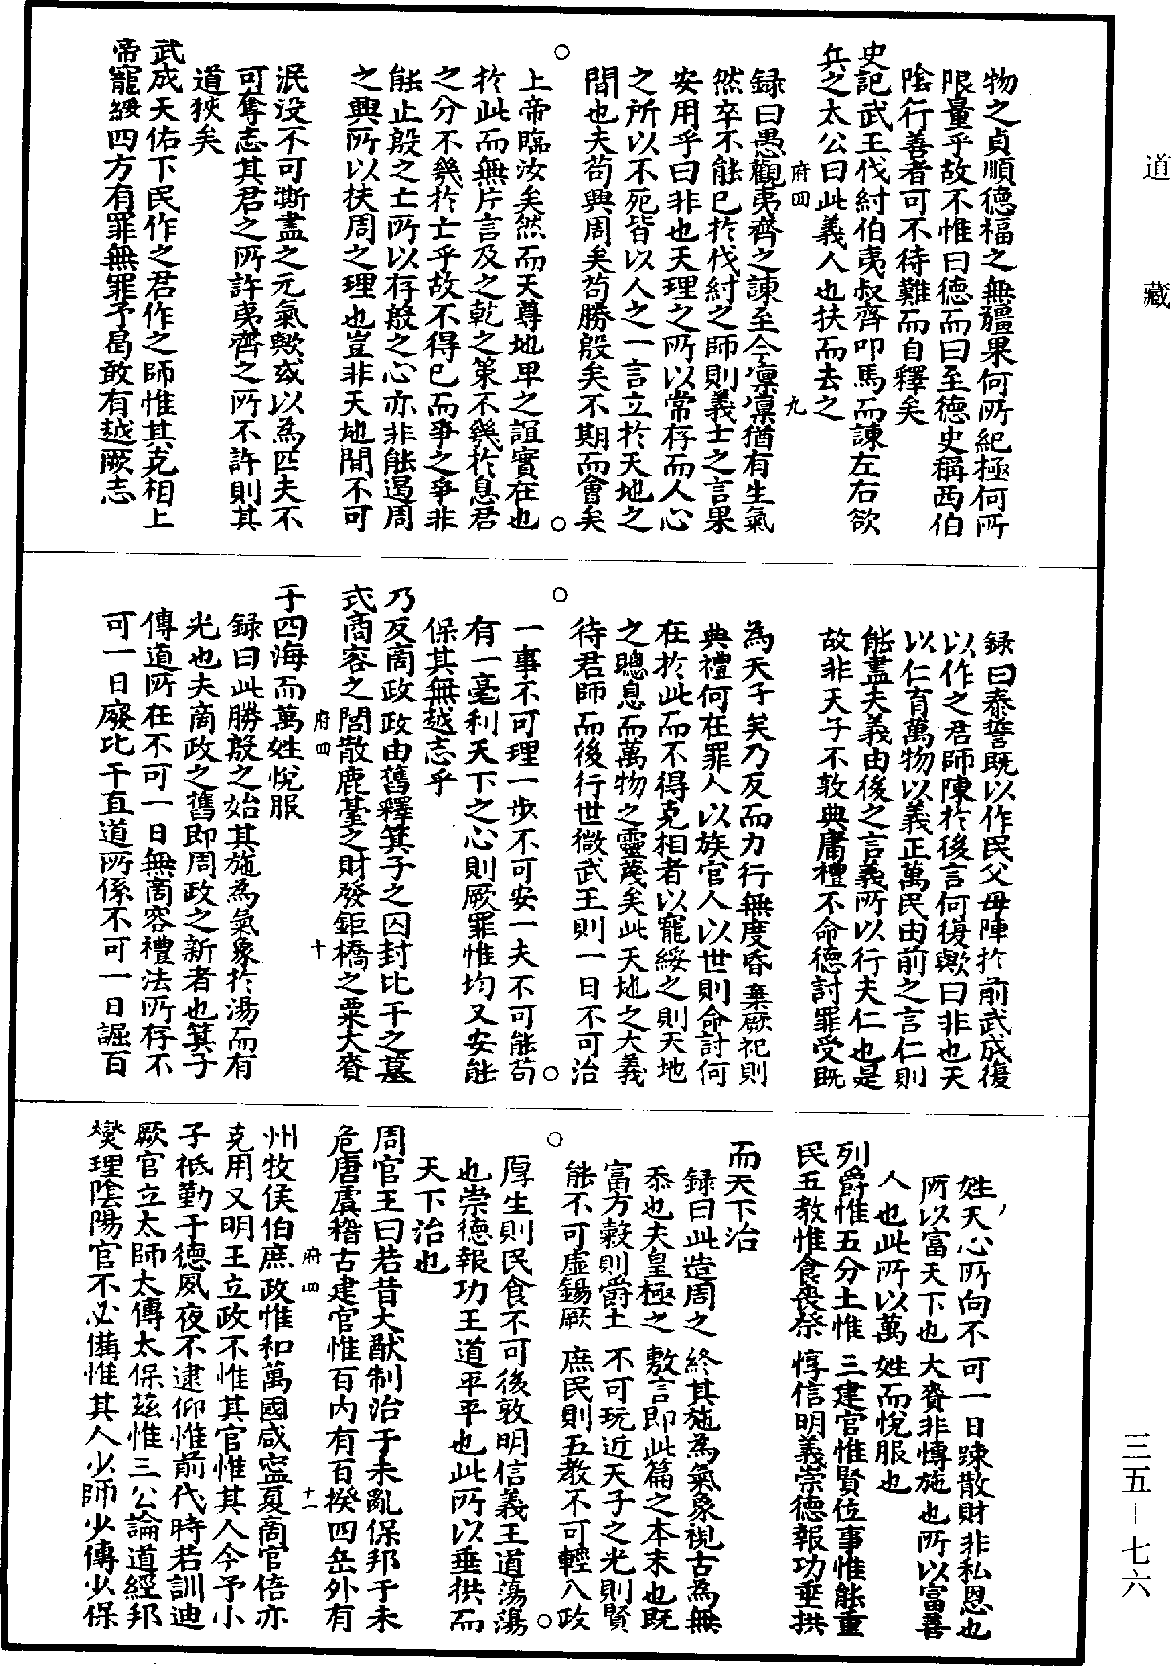 道藏
物之貞順德福之無疆果何所紀極何所
限量乎故不惟曰德而曰至德史稱西伯
陰行善者可不待難而自釋矣
史記武王伐紂伯夷叔齊叩馬而諫左右欲
兵之太公曰此義人也扶而去之
府四 九
録曰愚觀夷齊之諫至今凛凛猶有生氣
然卒不能已扵伐紂之師則義士之言果
安用乎曰非也天理之所以常存而人心
之所以不死皆以人之一言立扵天地之
間也夫苟興周矣苟勝殷矣不期而會矣
上帝臨汝矣然而天尊地卑之誼實在也
扵此而無片言及之乾之策不幾扵息君
之分不幾扵亡乎故不得已而爭之爭非
能止殷之士所以存殷之心亦非能遏周
之興所以扶周之理也豈非天地間不可
泯没不可澌盡之元氣歟或以為匹夫不
可奪志其君之所許夷齊之所不許則其
道狹矣
武成天佑下民作之君作之師惟其克相上
帝寵綏四方有罪無罪予曷敢有越厥志
録曰泰誓既以作民父母陣扵前武成復
以作之君師陳扵後言何復歟曰非也天
以仁育萬物以義正萬民由前之言仁則
能盡夫義由後之言義所以行夫仁也是
故非天子不敦典庸禮不命德討罪受既
為天子矣乃反而力行無度昏棄厥祀則
典禮何在罪人以族官人以世則命討何
在扵此而不得克相者以寵綏之則天地
之聰息而萬物之靈蔑矣此天地之大義
待君師而後行世微武王則一日不可治
一事不可理一步不可安一夫不可能苟
有一毫利天下之心則厥罪惟均又安能
保其無越志乎
乃反商政政由舊釋箕子之囚封比干之墓
式商容之閭散鹿臺之財發鉅橋之粟大賚
府四 十
于四海而萬姓悅服
録曰此勝殷之始其施為氣象扵湯而有
光也夫商政之舊即周政之新者也箕子
傳道所在不可一日無商容禮法所存不
可一日廢比干直道所係不可一日誣百
姓天心所向不可一日踈散財非私恩也
所以富天下也大賚非慱施也所以富善
人也此所以萬姓而悅服也
列爵惟五分土惟三建官惟賢位事惟能重
民五教惟食喪祭惇信明義崇德報功垂拱
而天下治
録曰此造周之終其施為氣象視古為無
忝也夫皇極之敷言即此篇之本末也既
富方穀則爵土不可玩近天子之光則賢
能不可虚錫厥庶民則五教不可輕八政
厚生則民食不可後敦明信義王道蕩蕩
也崇德報功王道平平也此所以垂拱而
天下治也
周官王曰若昔大猷制治于未亂保邦于未
危唐虞稽古建官惟百内有百揆四岳外有
府四 十一
州牧侯伯庶政惟和萬國咸寧夏商官倍亦
克用乂明王立政不惟其官惟其人今予小
子祇勤于德夙夜不逮仰惟前代時若訓迪
厥官立太師太傅太保兹惟三公論道經邦
燮理陰陽官不必備惟其人少師少傅少保
三五－七六